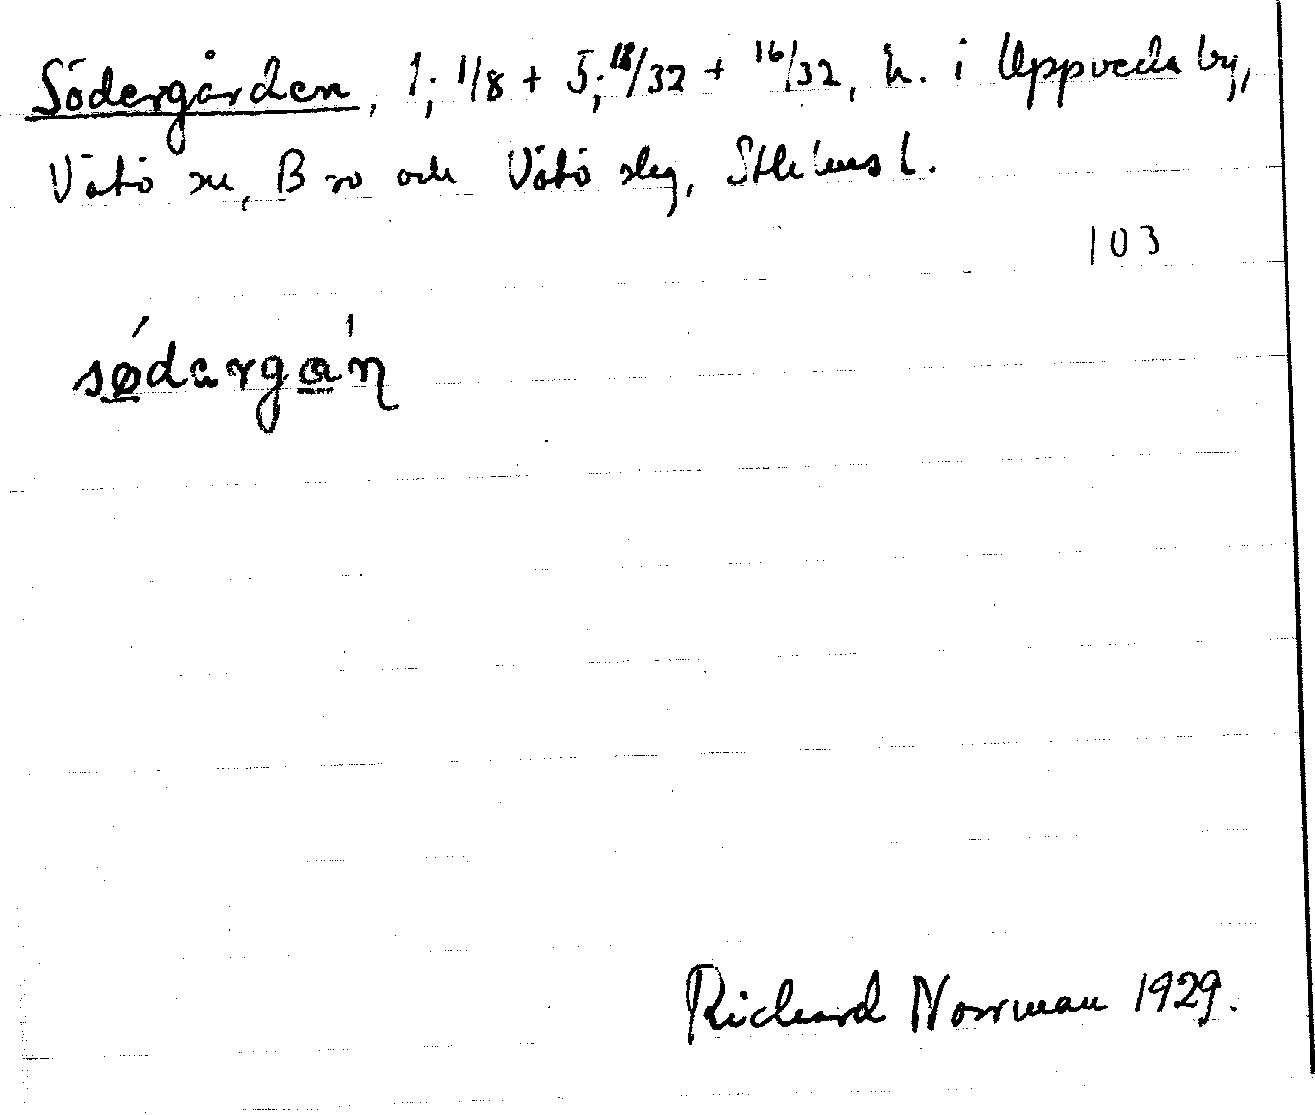 Södergården, 1; 1/8 + 5; 18/32 + 16/32, h. i Uppveda by,
Vätö sn, Bro och Vätö slg, Sthlms l.
103
sǿdargɑ́ɳ
Richard Norrman 1929.